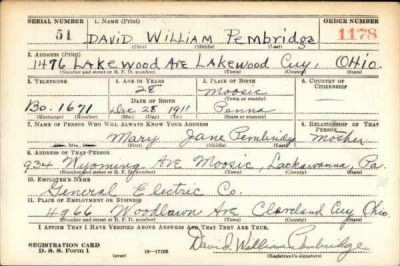 SERIAL NUMBER 1. NAME (Print) ORDER NUMBER
51 DAVID William Pembridge 1178
(First) (Middle) (Last)
2. ADDRESS (Print)
1476 Lakewood Ave Lakewood Cuy, OHIO.
(Number and street or R. F. D. number) (Town) (County) (State)
3. TELEPHONE 4. AGE IN YEARS 5. PLACE OF BIRTH 6. COUNTRY OF CITIZENSHIP
28 Moosic
Bo. 1671 DATE OF BIRTH (Town or county)
Dec 28 1911 Penna
(Exchange) (Number) (Mo.) (Day) (Yr.) (State or country)
7. NAME OF PERSON WHO WILL ALWAYS KNOW YOUR ADDRESS 8. RELATIONSHIP OF THAT PERSON
Mary Jane Pembridge Mother
(Mr., Mrs., Miss) (First) (Middle) (Last)
9. ADDRESS OF THAT PERSON
934 Wyoming Ave Moosic, Lackawanna, Pa.
(Number and street or R. F. D. number) (Town) (County) (State)
10. EMPLOYER'S NAME
General Electric Co.
11. PLACE OF EMPLOYMENT OR BUSINESS
4966 Woodlawn Ave Cleveland Cuy Ohio
(Number and street or R. F. D. number) (Town) (County) (State)
I AFFIRM THAT I HAVE VERIFIED ABOVE ANSWERS AND THAT THEY ARE TRUE.
REGISTRATION CARD David William Pembridge
D. S. S. Form 1 (over) 16—17105 (Registrant's signature)